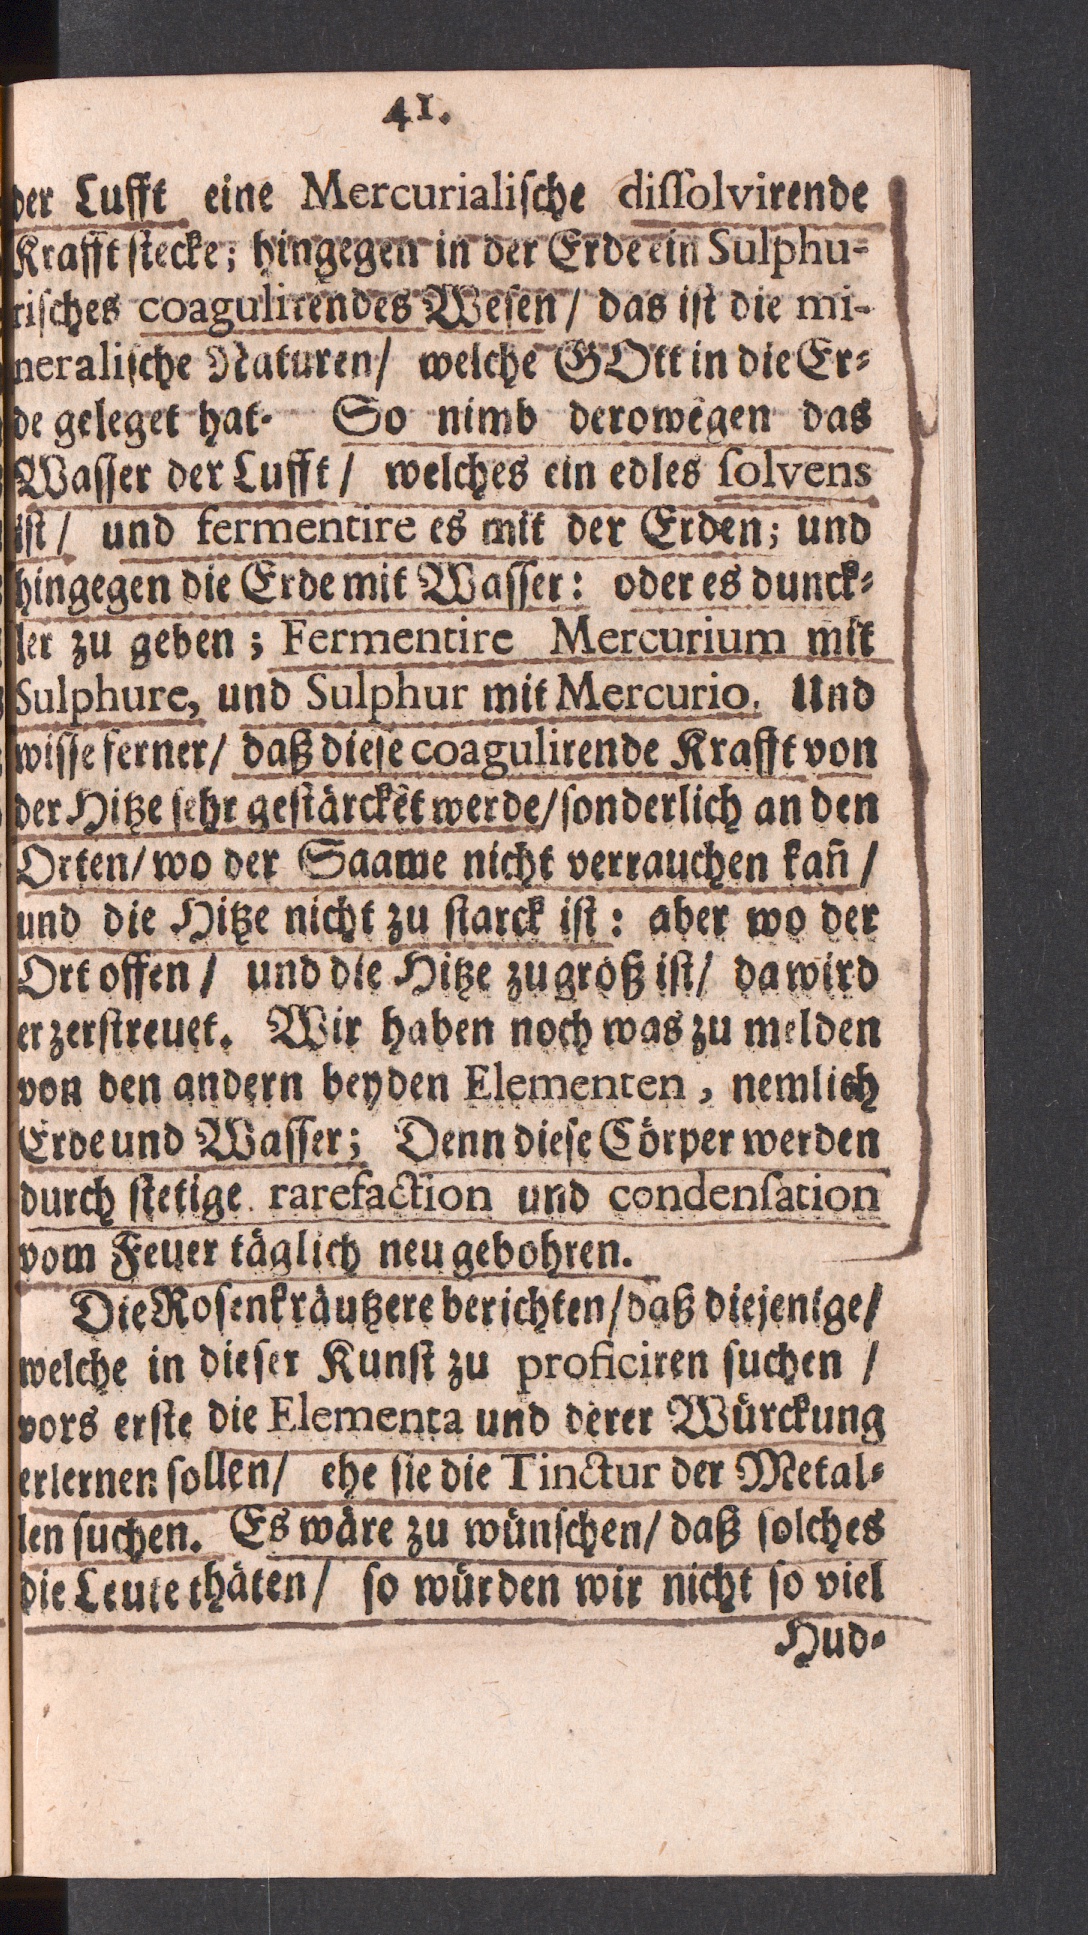 41.
der Lufft eine Mercurialische dissolvirende
Krafft stecke; hingegen in der Erde ein Sulphu-
risches coagulirendes Wesen / das ist die mi-
neralische Naturen / welche GOtt in die Er-
de geleget hat. So nimb derowegen das
Wasser der Lufft / welches ein edles solvens
ist / und fermentire es mit der Erden; und
hingegen die Erde mit Wasser: oder es dunck-
ler zu geben; Fermentire Mercurium mit
Sulphure, und Sulphur mit Mercurio. Und
wisse ferner / daß diese coagulirende Krafft von
der Hitze sehr gestärcket werde / sonderlich an den
Orten / wo der Saame nicht verrauchen kañ /
und die Hitze nicht zu starck ist: aber wo der
Ort offen / und die Hitze zu groß ist / da wird
er zerstreuet. Wir haben noch was zu melden
von den andern beyden Elementen, nemlich
Erde und Wasser; Denn diese Cörper werden
durch stetige rarefaction und condensation
vom Feuer täglich neu gebohren.
Die Rosenkräutzere berichten / daß diejenige /
welche in dieser Kunst zu proficiren suchen /
vors erste die Elementa und derer Würckung
erlernen sollen / ehe sie die Tinctur der Metal-
len suchen. Es wäre zu wünschen / daß solches
die Leute thäten / so würden wir nicht so viel
Hud-